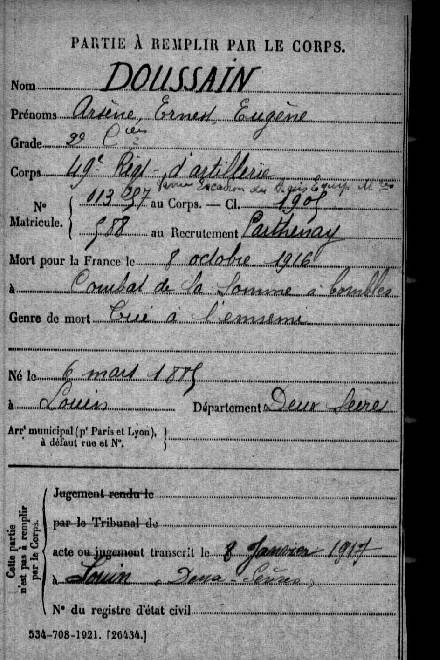 PARTIE À REMPLIR PAR LE CORPS.
Nom DOUSSAIN
Prénoms Arsène, Ernest, Eugène
Grade 2e Cier
Corps 49e Régt d'artillerie
Escadron des
N° Matricule. 013 au Corps. — Cl. 1905
588 au Recrutement Parthenay
Mort pour la France le 8 octobre 1916
à Combat de la Somme à Combles
Genre de mort Tué à l'ennemi
Né le 6 mars 1885
à Louin Département Deux Sèvres
Arrt municipal (pr Paris et Lyon),
à défaut rue et N°.
Cette partie n'est pas à remplir par le Corps.
Jugement rendu le
par le Tribunal de
acte ou jugement transcrit le 8 Janvier 1917
à Louin, Deux-Sèvres
N° du registre d'état civil
534-708-1921. [26434.]